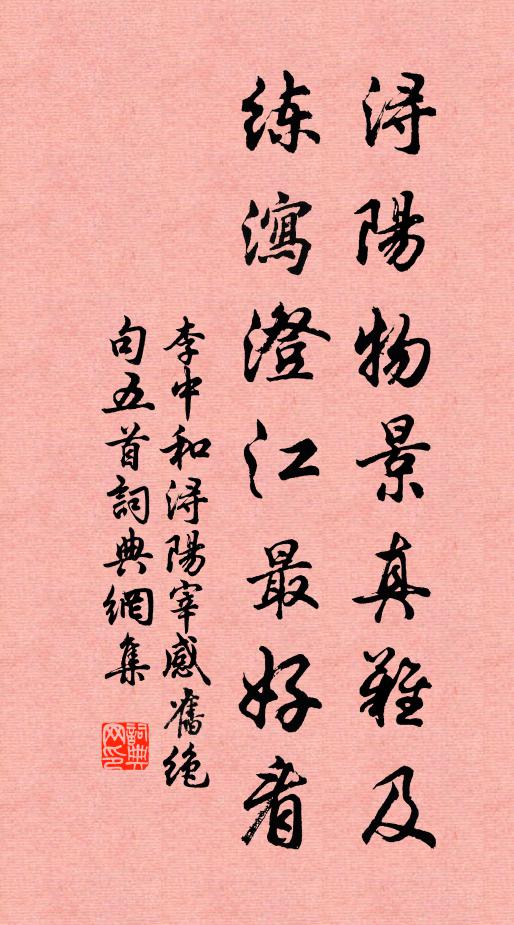 浔陽物景真難及
练瀉澄江最好看
李中和浔陽宰感舊絶
句五首詞典網集
詞典网印